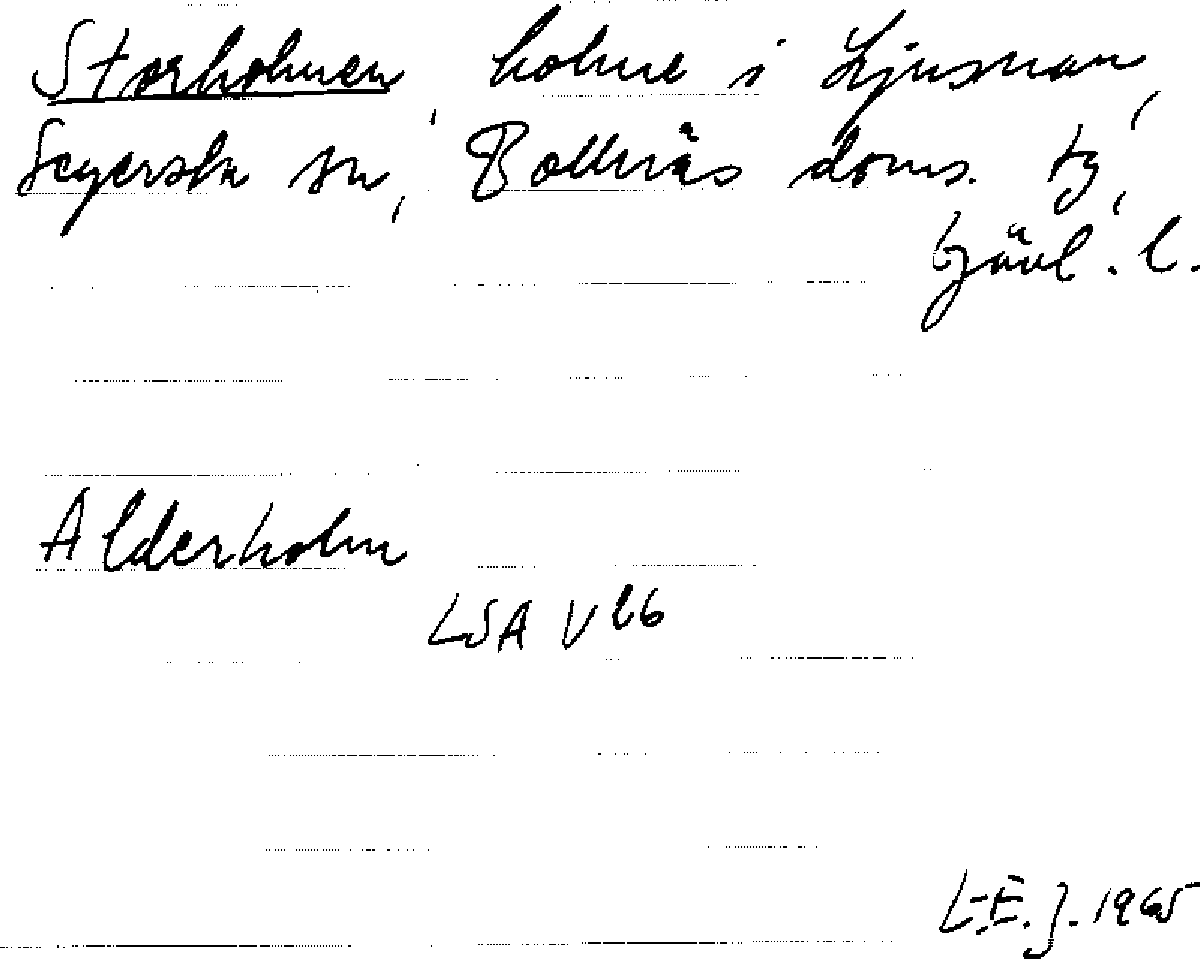 Storholmen, holme i Ljusnan,
Segersta sn, Bollnäs doms. tg,
Gävl. l.
Alderholm
LSA V 26
L-E. J. 1965